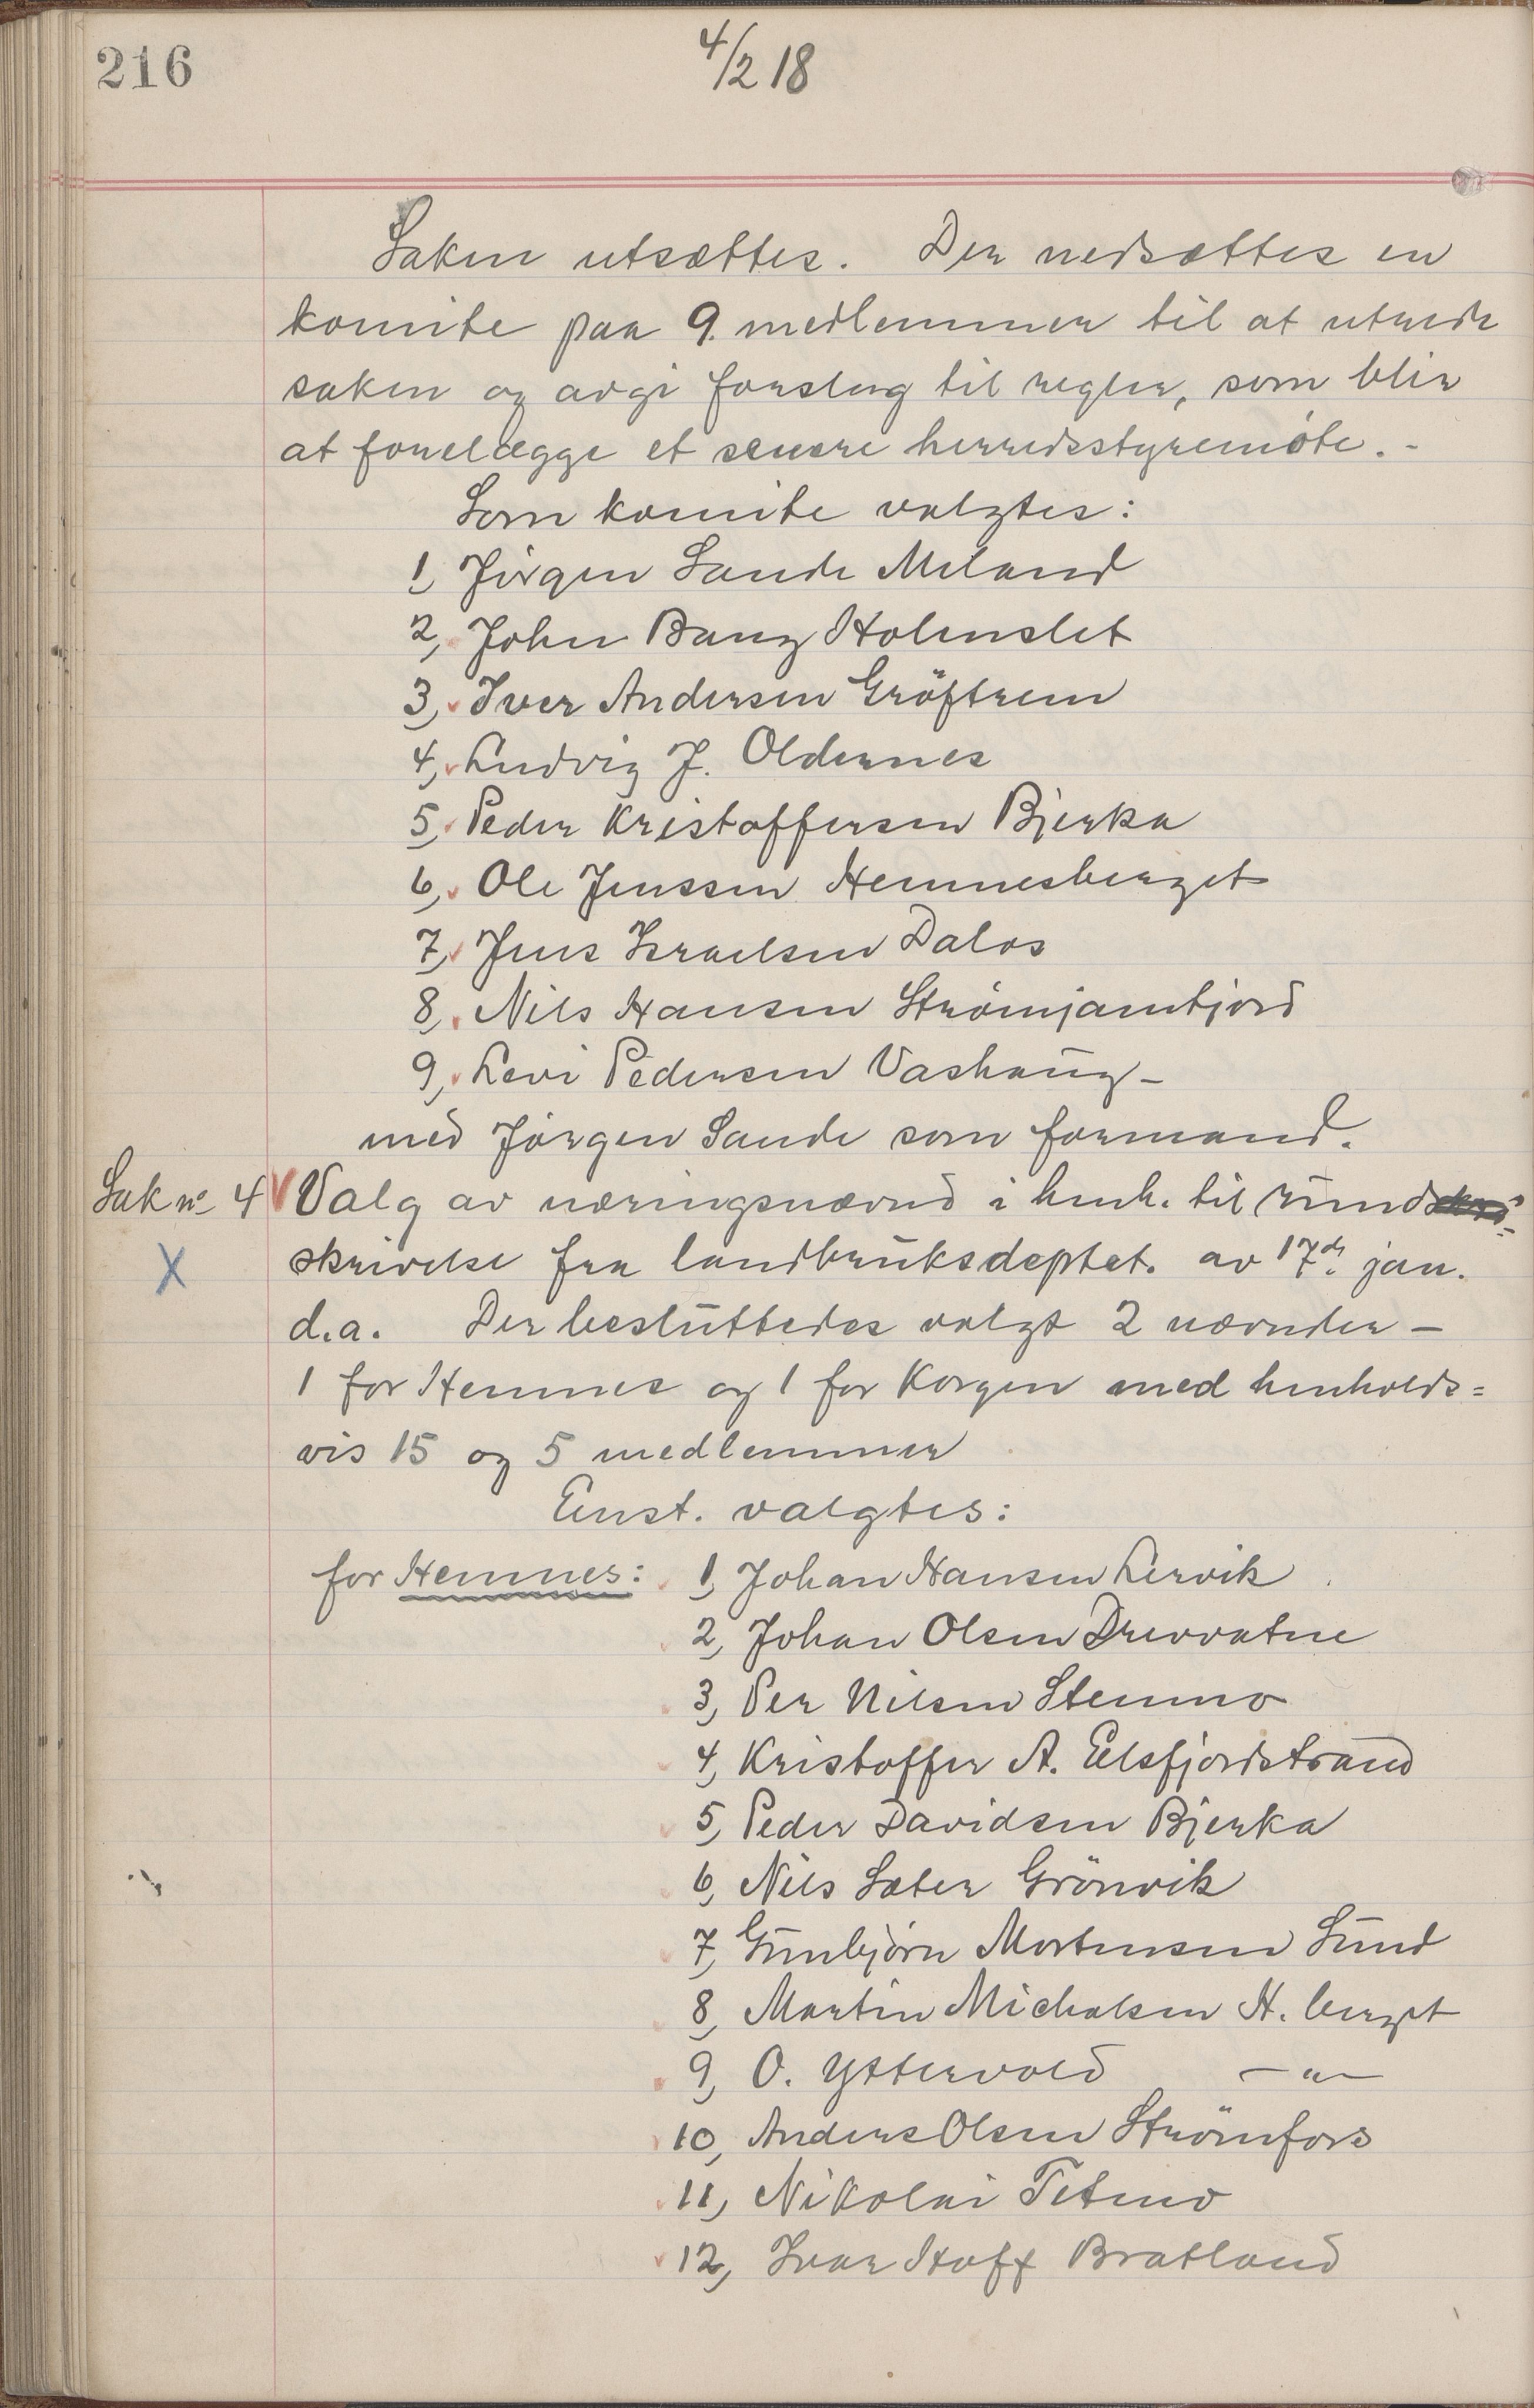 216
4/2 18
Saken utsættes. Der nedsættes en
komite paa 9. medlemmer til at utrede
saken og avgi forslag til regler, som blir
at forelægge et senere herredsstyremöte.-
Som komite valgtes:
1, Jörgen Sande Meland
2, John Bang Holmslet
3, Iver Andersen Gröftrem
4, Ludvig J. Oldernes
5, Peder Kristoffersen Bjerka
6, Ole Jenssen Hemnesberget
7, Jens Israelsen Dalos
8, Nils Hansen Strömjamtjord
9, Levi Pedersen Vashaug-
med Jörgen Sande som formand.
Sak no 4 Valg av næringsnævnd i henh. til rund
X skrivelse fra landbruksdeptet. av 17de jan.
d.a. Der besluttedes valgt 2 nævnder -
1 for Hemnes og 1 for Korgen med henholds=
vis 15 og 5 medlemmer
Enst. valgtes:
for Hemnes: 1, Johan Hansen Lervik
2, Johan Olsen Drevvatne
3, Per Nilsen Stenmo
4, Kristoffer A. Elsfjordstrand
5, Peder Davidsen Bjerka
6, Nils Sæter Grönvik
7, Gunbjörn Mortensen Sund
8, Martin Michalsen H. berget
9, O. Yttervold -"-
10, Anders Olsen Strömfors
11, Nikolai Tetmo
12, Ivar Hoff Bratland